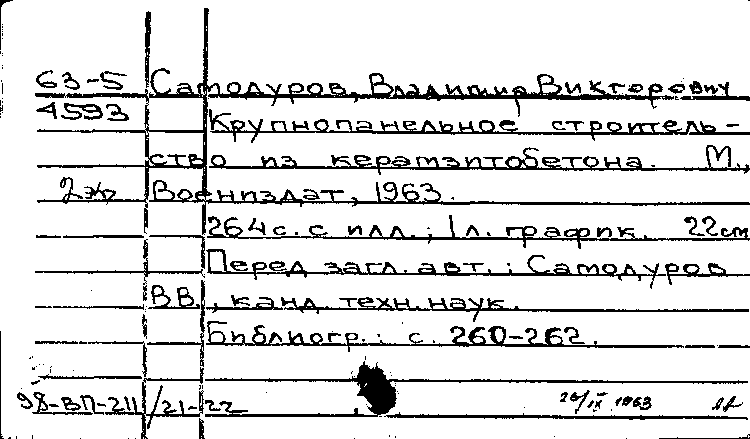 63-5 Самодуров, Владимир Викторович
4593 Крупнопанельное строитель-
ство из керамзитобетона. М.,
2 эк Воениздат, 1963.
264 с. с илл.; 1 л. график. 22 см
Перед загл. авт.: Самодуров
В.В., канд. техн. наук.
Библиогр.: с. 260-262.
98-ВП-211/21-22 26/IX 1963